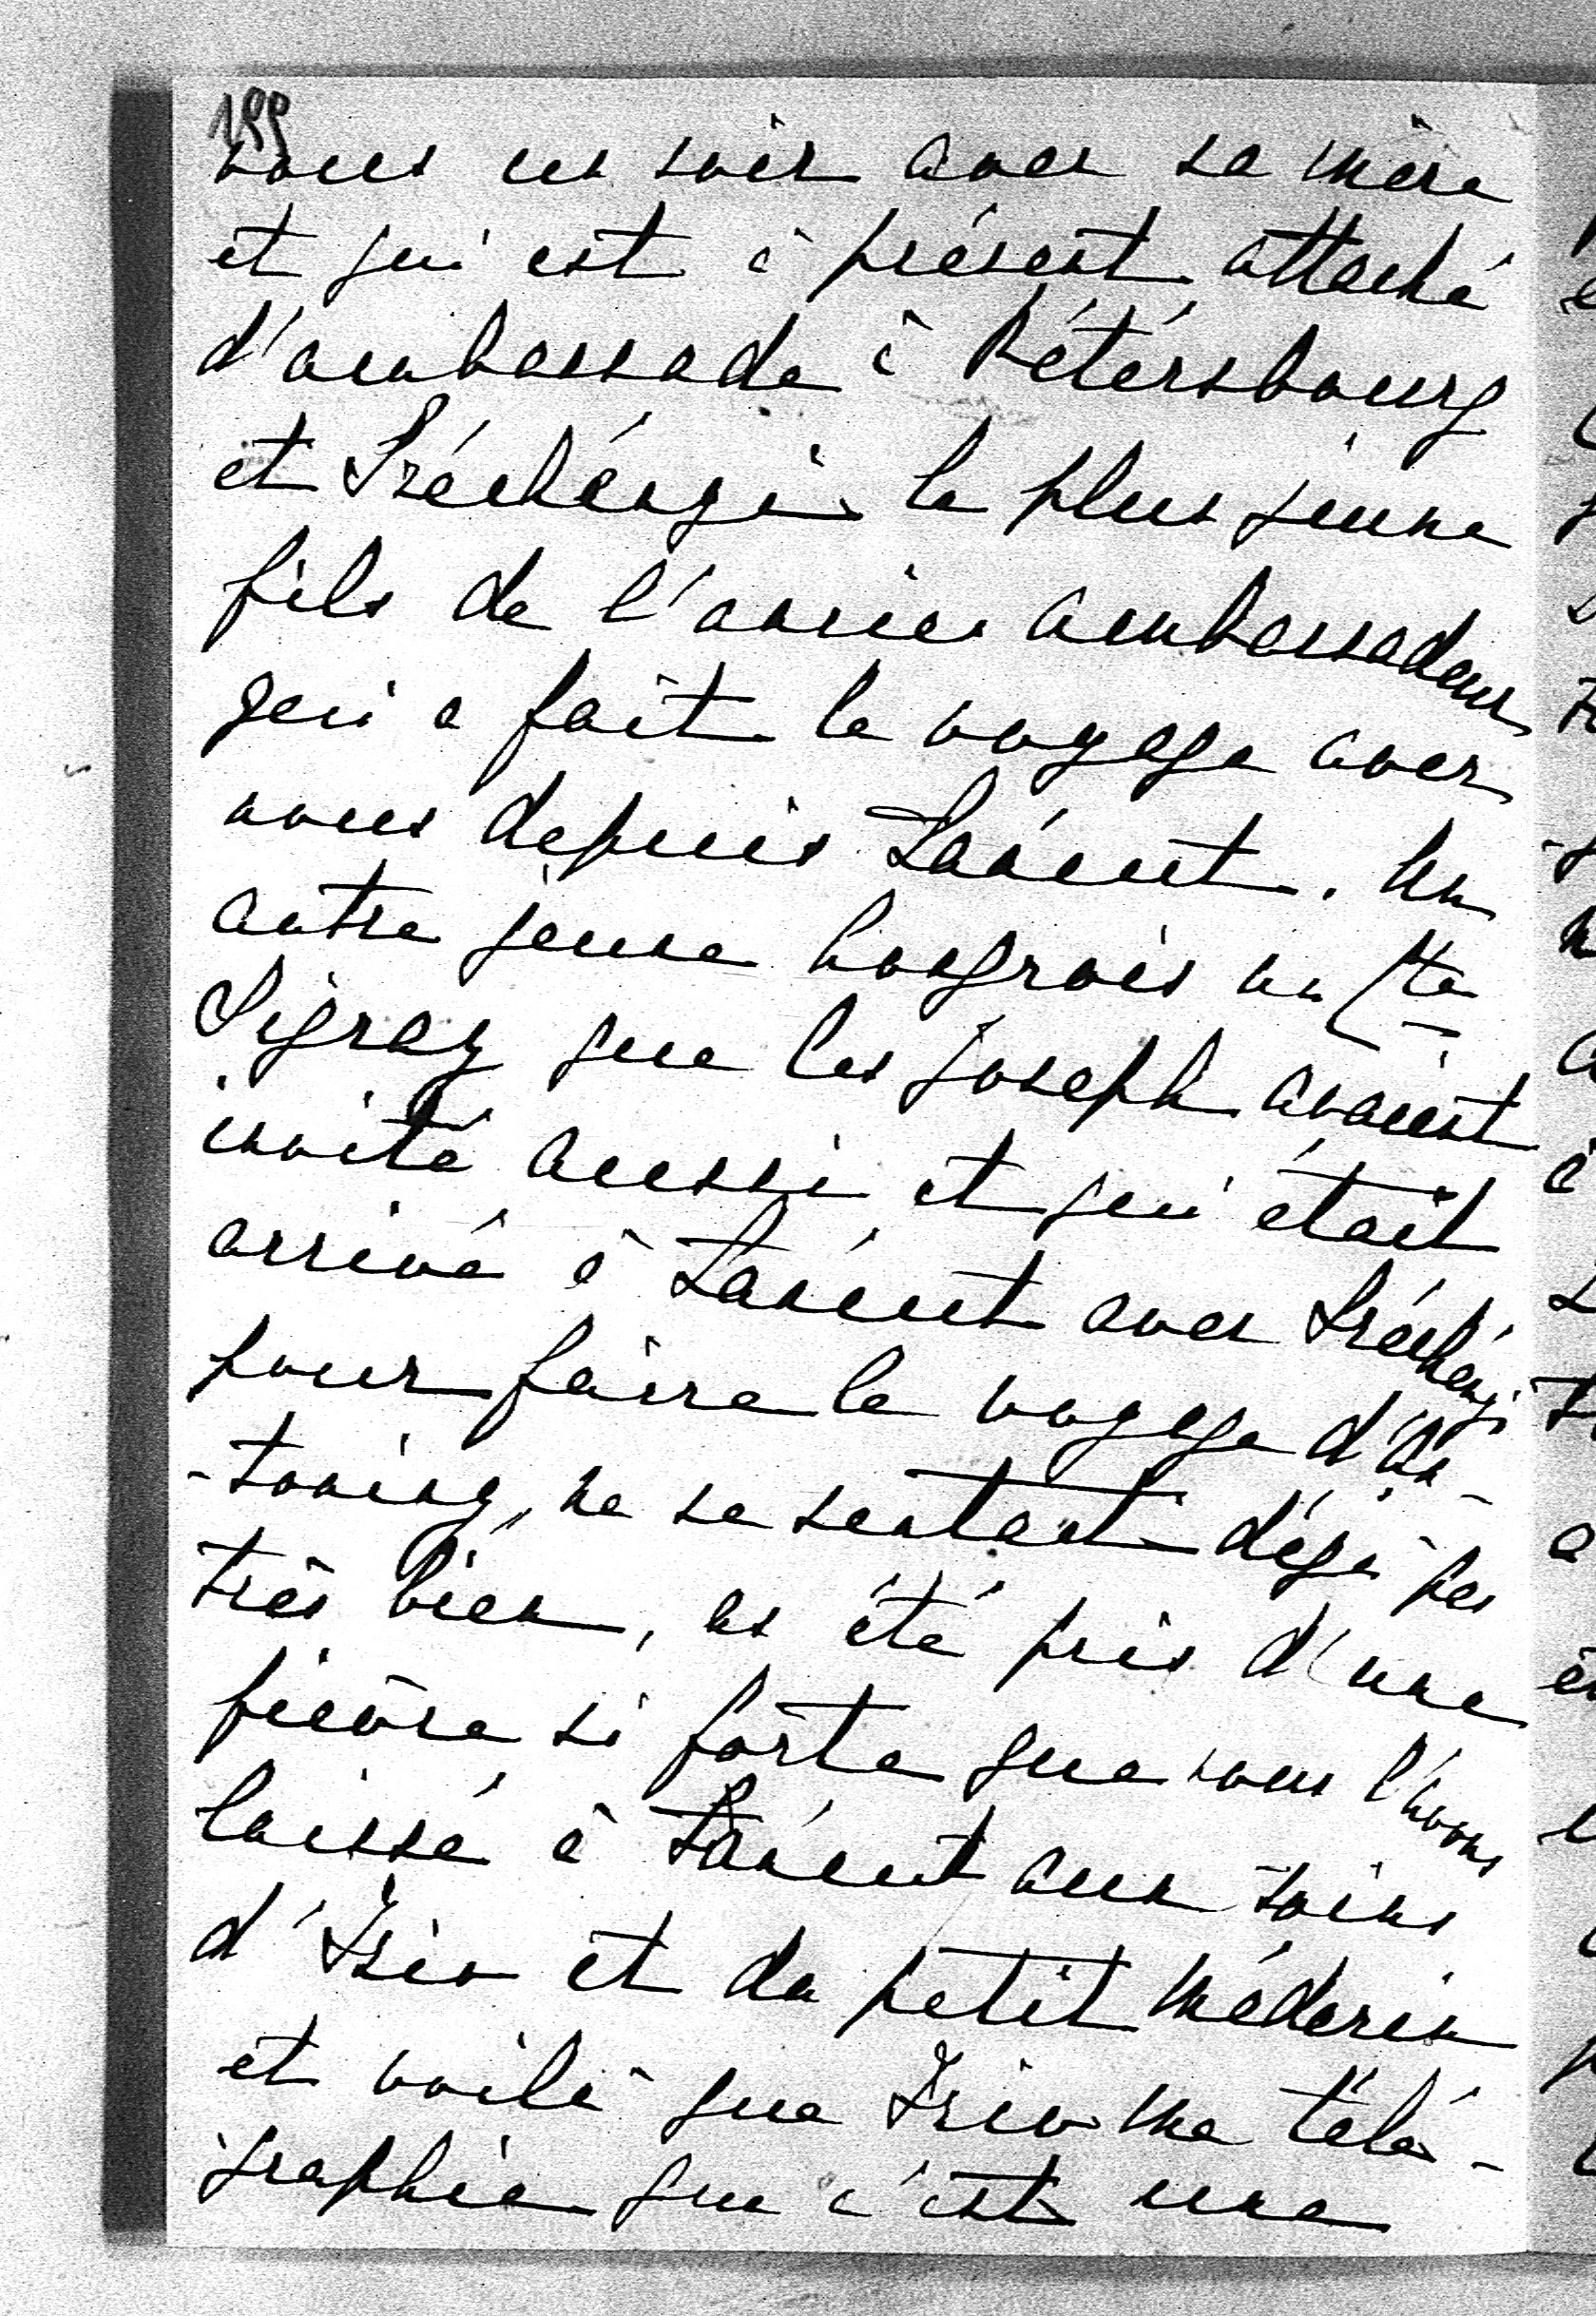 199
nous un soir avec sa mère
et qui est à présent attaché
d'ambassade à Pétersbourg
et Széchényi le plus jeune
fils de l'ancien ambassadeur
qui a fait le voyage avec
nous depuis Lańcut. Un
autre jeune hongrois un Cte
Sigray que les Joseph avaient
invité aussi et qui était
arrivé à Łańcut avec Széchényi
pour faire le voyage d'An-
-toniny, ne se sentant déjà pas
très bien, as été pris d'une
fièvre si forte que nous l'avons
laissé à Łańcut aux soins
d'Izio et du petit médecin
et voilà que Izio me télé-
graphie que c'est une